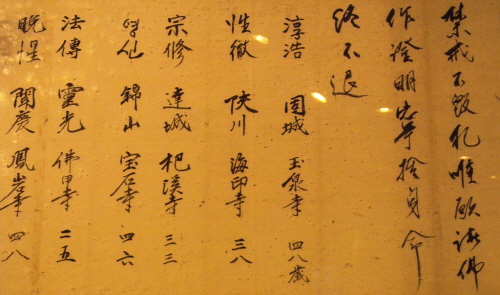 禁戒不毀犯唯願諸佛
作證明寧捨身命
終不退
淳浩 固城 玉泉寺 四八歲
性徹 陜川 海印寺 三八
宗修 達城 杷溪寺 三三
영신 錦山 宝石寺 四六
法傳 靈光 佛甲寺 二五
晩惺 聞慶 鳳岩寺 四八